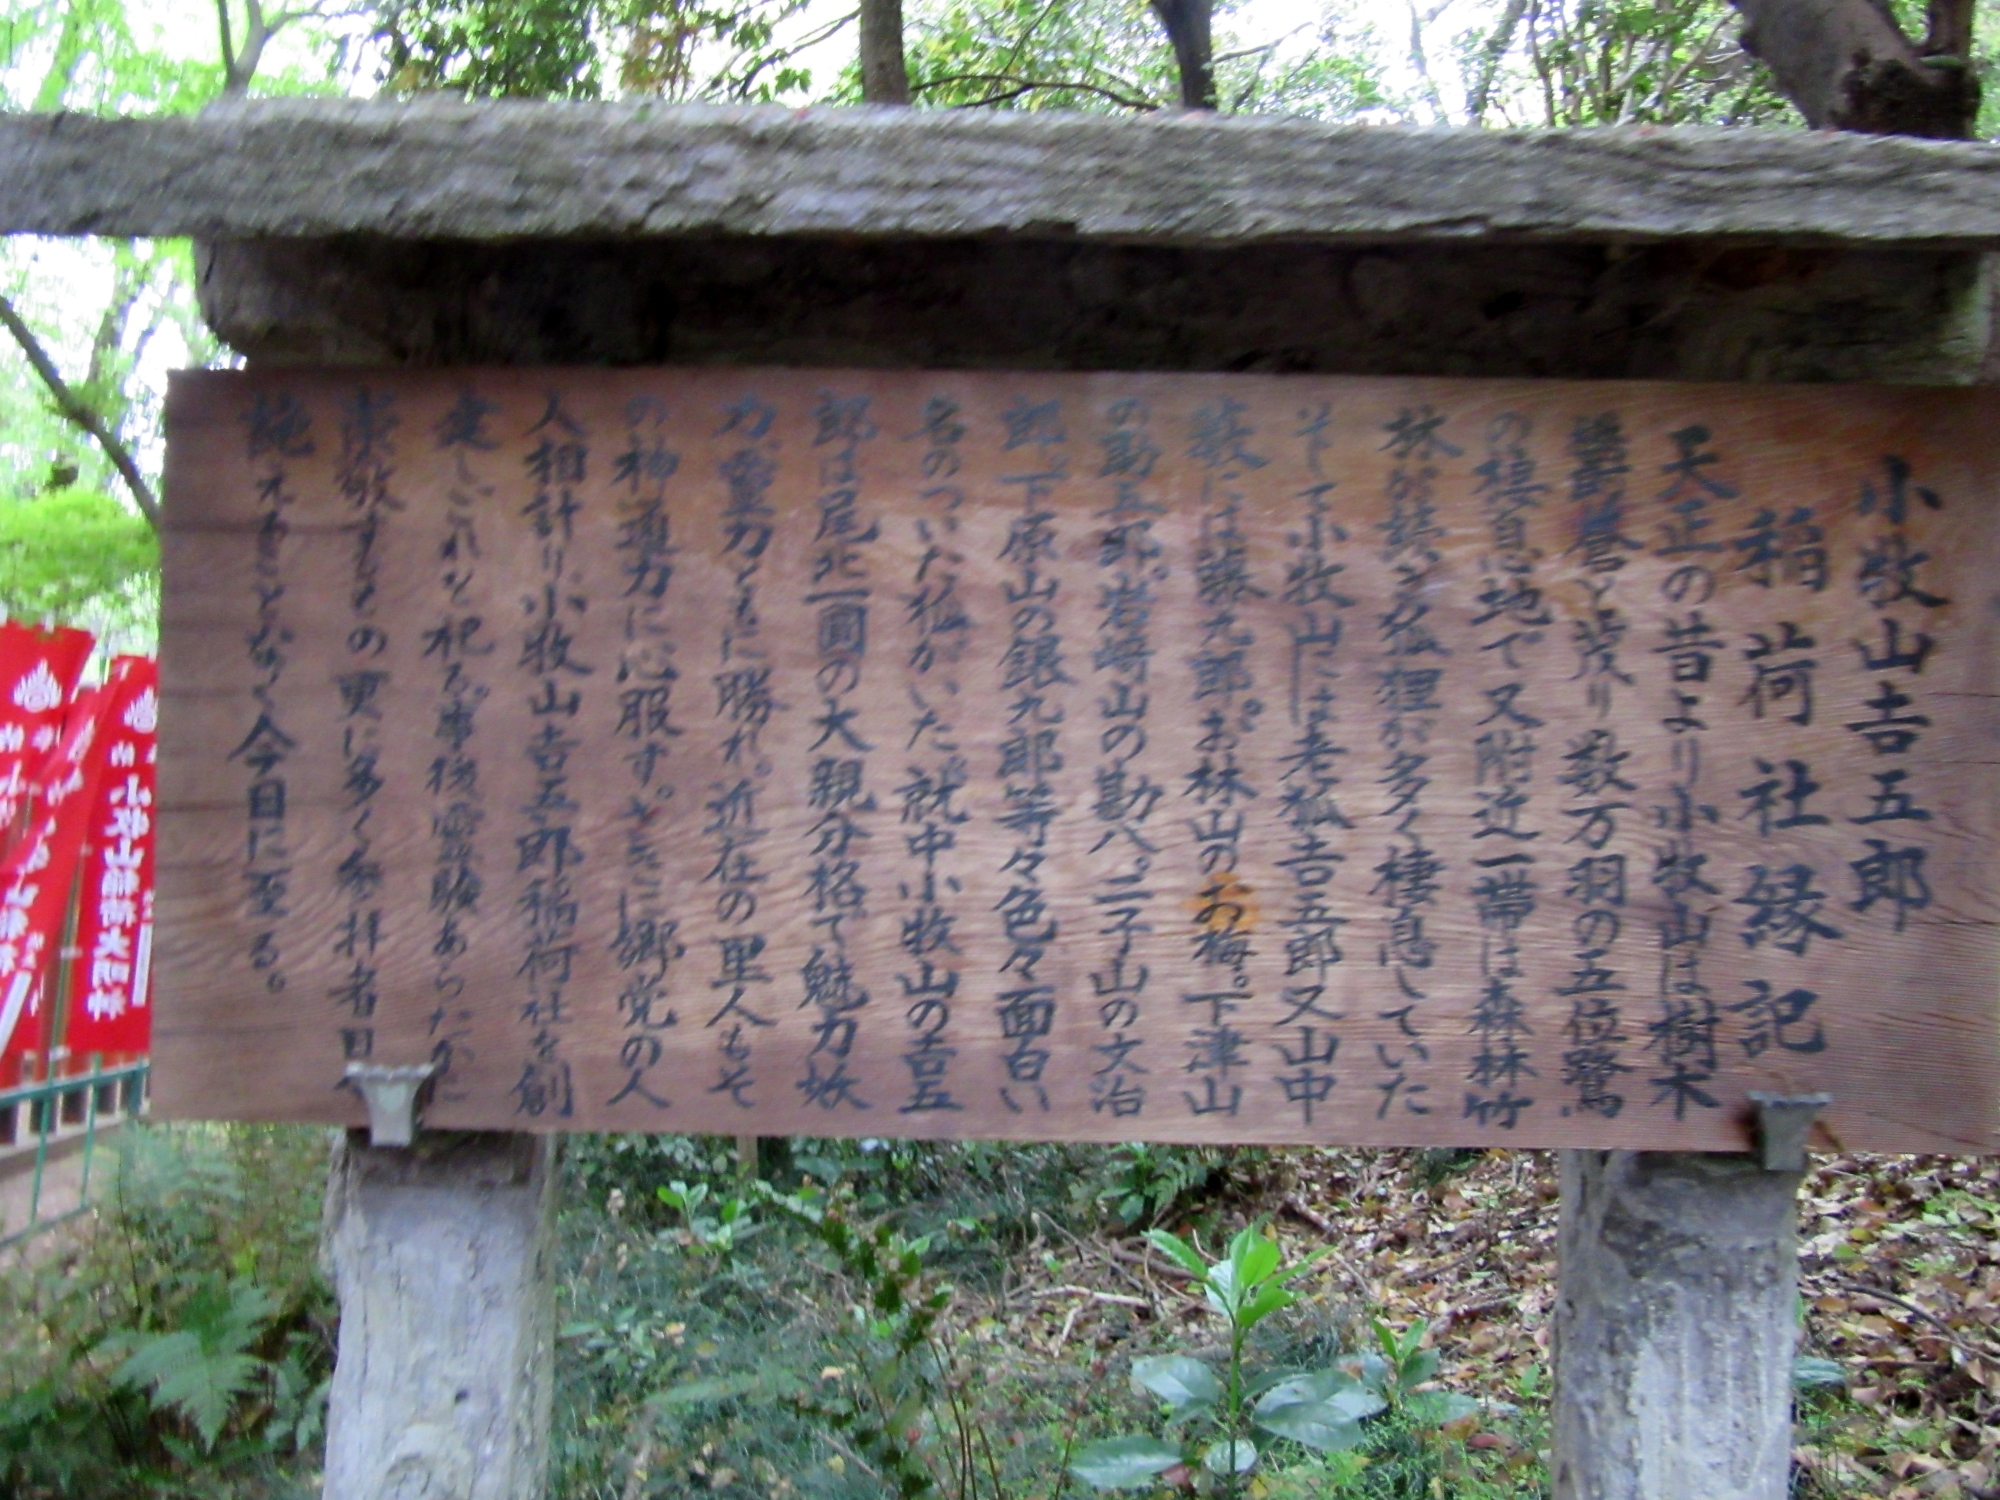 小牧山吉五郎
稲荷社縁記
天正の昔より小牧山は樹木
鬱蒼と茂り数万羽の五位鷺
の棲息地で又附近一帯は森林竹
林が続き狐狸が多く棲息していた
そして小牧山には老狐吉五郎又山中
薮には藤九郎。お林山のお梅。下津山
の助五郎。岩崎山の勘八。二子山の文治
郎。下原山の銀九郎等々色々面白い
名のついた狐がいた。就中小牧山の吉五
郎は尾北一圓の大親分格で魅力妖
力。霊力ともに勝れ。近在の里人もそ
の神通力に心服す。郷党の人
人相計り小牧山吉五郎稲荷社を創
建しこれを祀る。事後霊験あらたかに
崇敬するもの更に多く参拝者日
絶えることなく今日に至る。
小牧山稲荷大明神